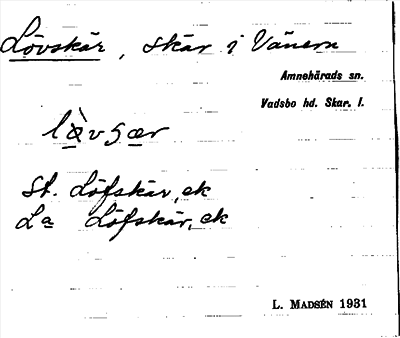 Lövskär, skär i Vänern
Amnehärads sn.
Vadsbo hd. Skar. l.
St. Löfskär, ek
La Löfskär, ek
L. MADSÉN 1931